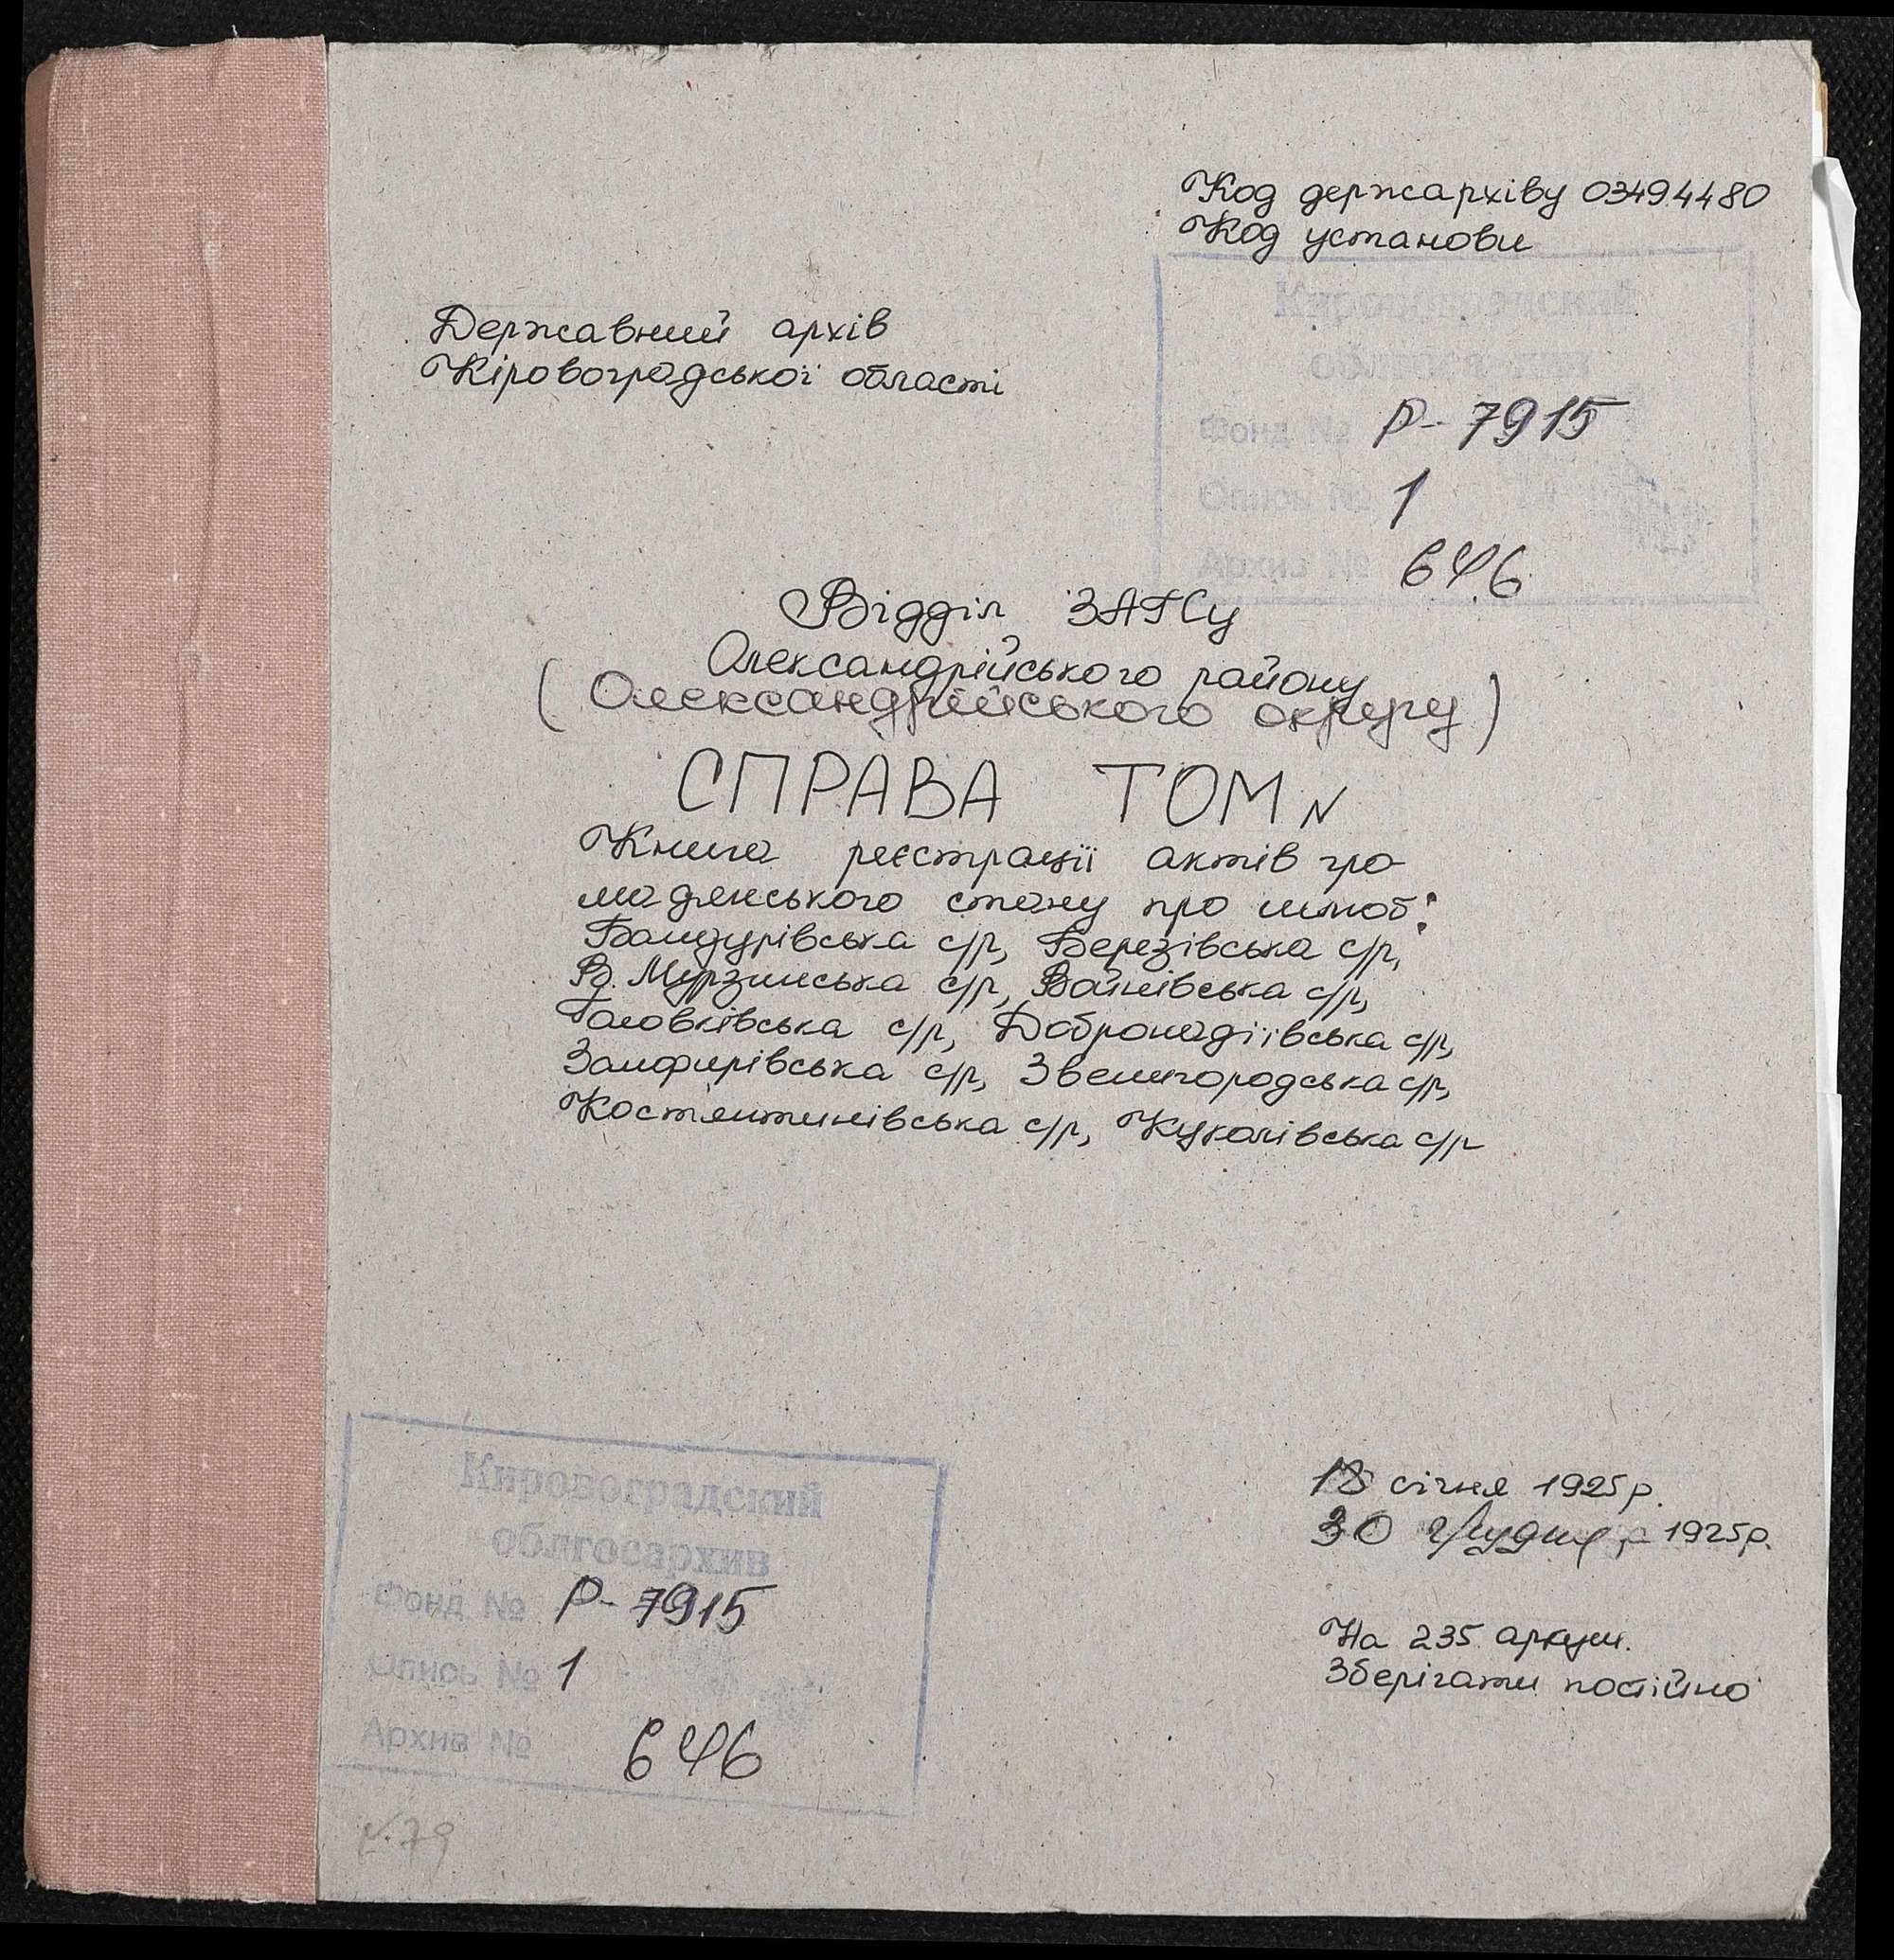 Код держархіву 03494480
Код установи
Державний архів
Кіровоградської області
Кировоградский
облгосархив
Фонд № Р-7915
Опись № 1
Архив № 646
Відділ ЗАГСу
Олександрійського району
(Олександрійського округу)
СПРАВА ТОМ N
Книга реєстрації актів гро-
мадянського стану про шлюб:
Бандурівська с/р, Березівська с/р,
В. Мурзинська с/р, Войнівська с/р,
Головківська с/р, Добронадіївська с/р,
Замфирівська с/р, Звенигородська с/р,
Костянтинівська с/р, Куколівська с/р
січня 1925р.
30 грудня 1925р.
На 235 аркуш.
Зберігати постійно
Кировоградский
облгосархив
Фонд № Р-7915
Опись № 1
Архив № 646
79